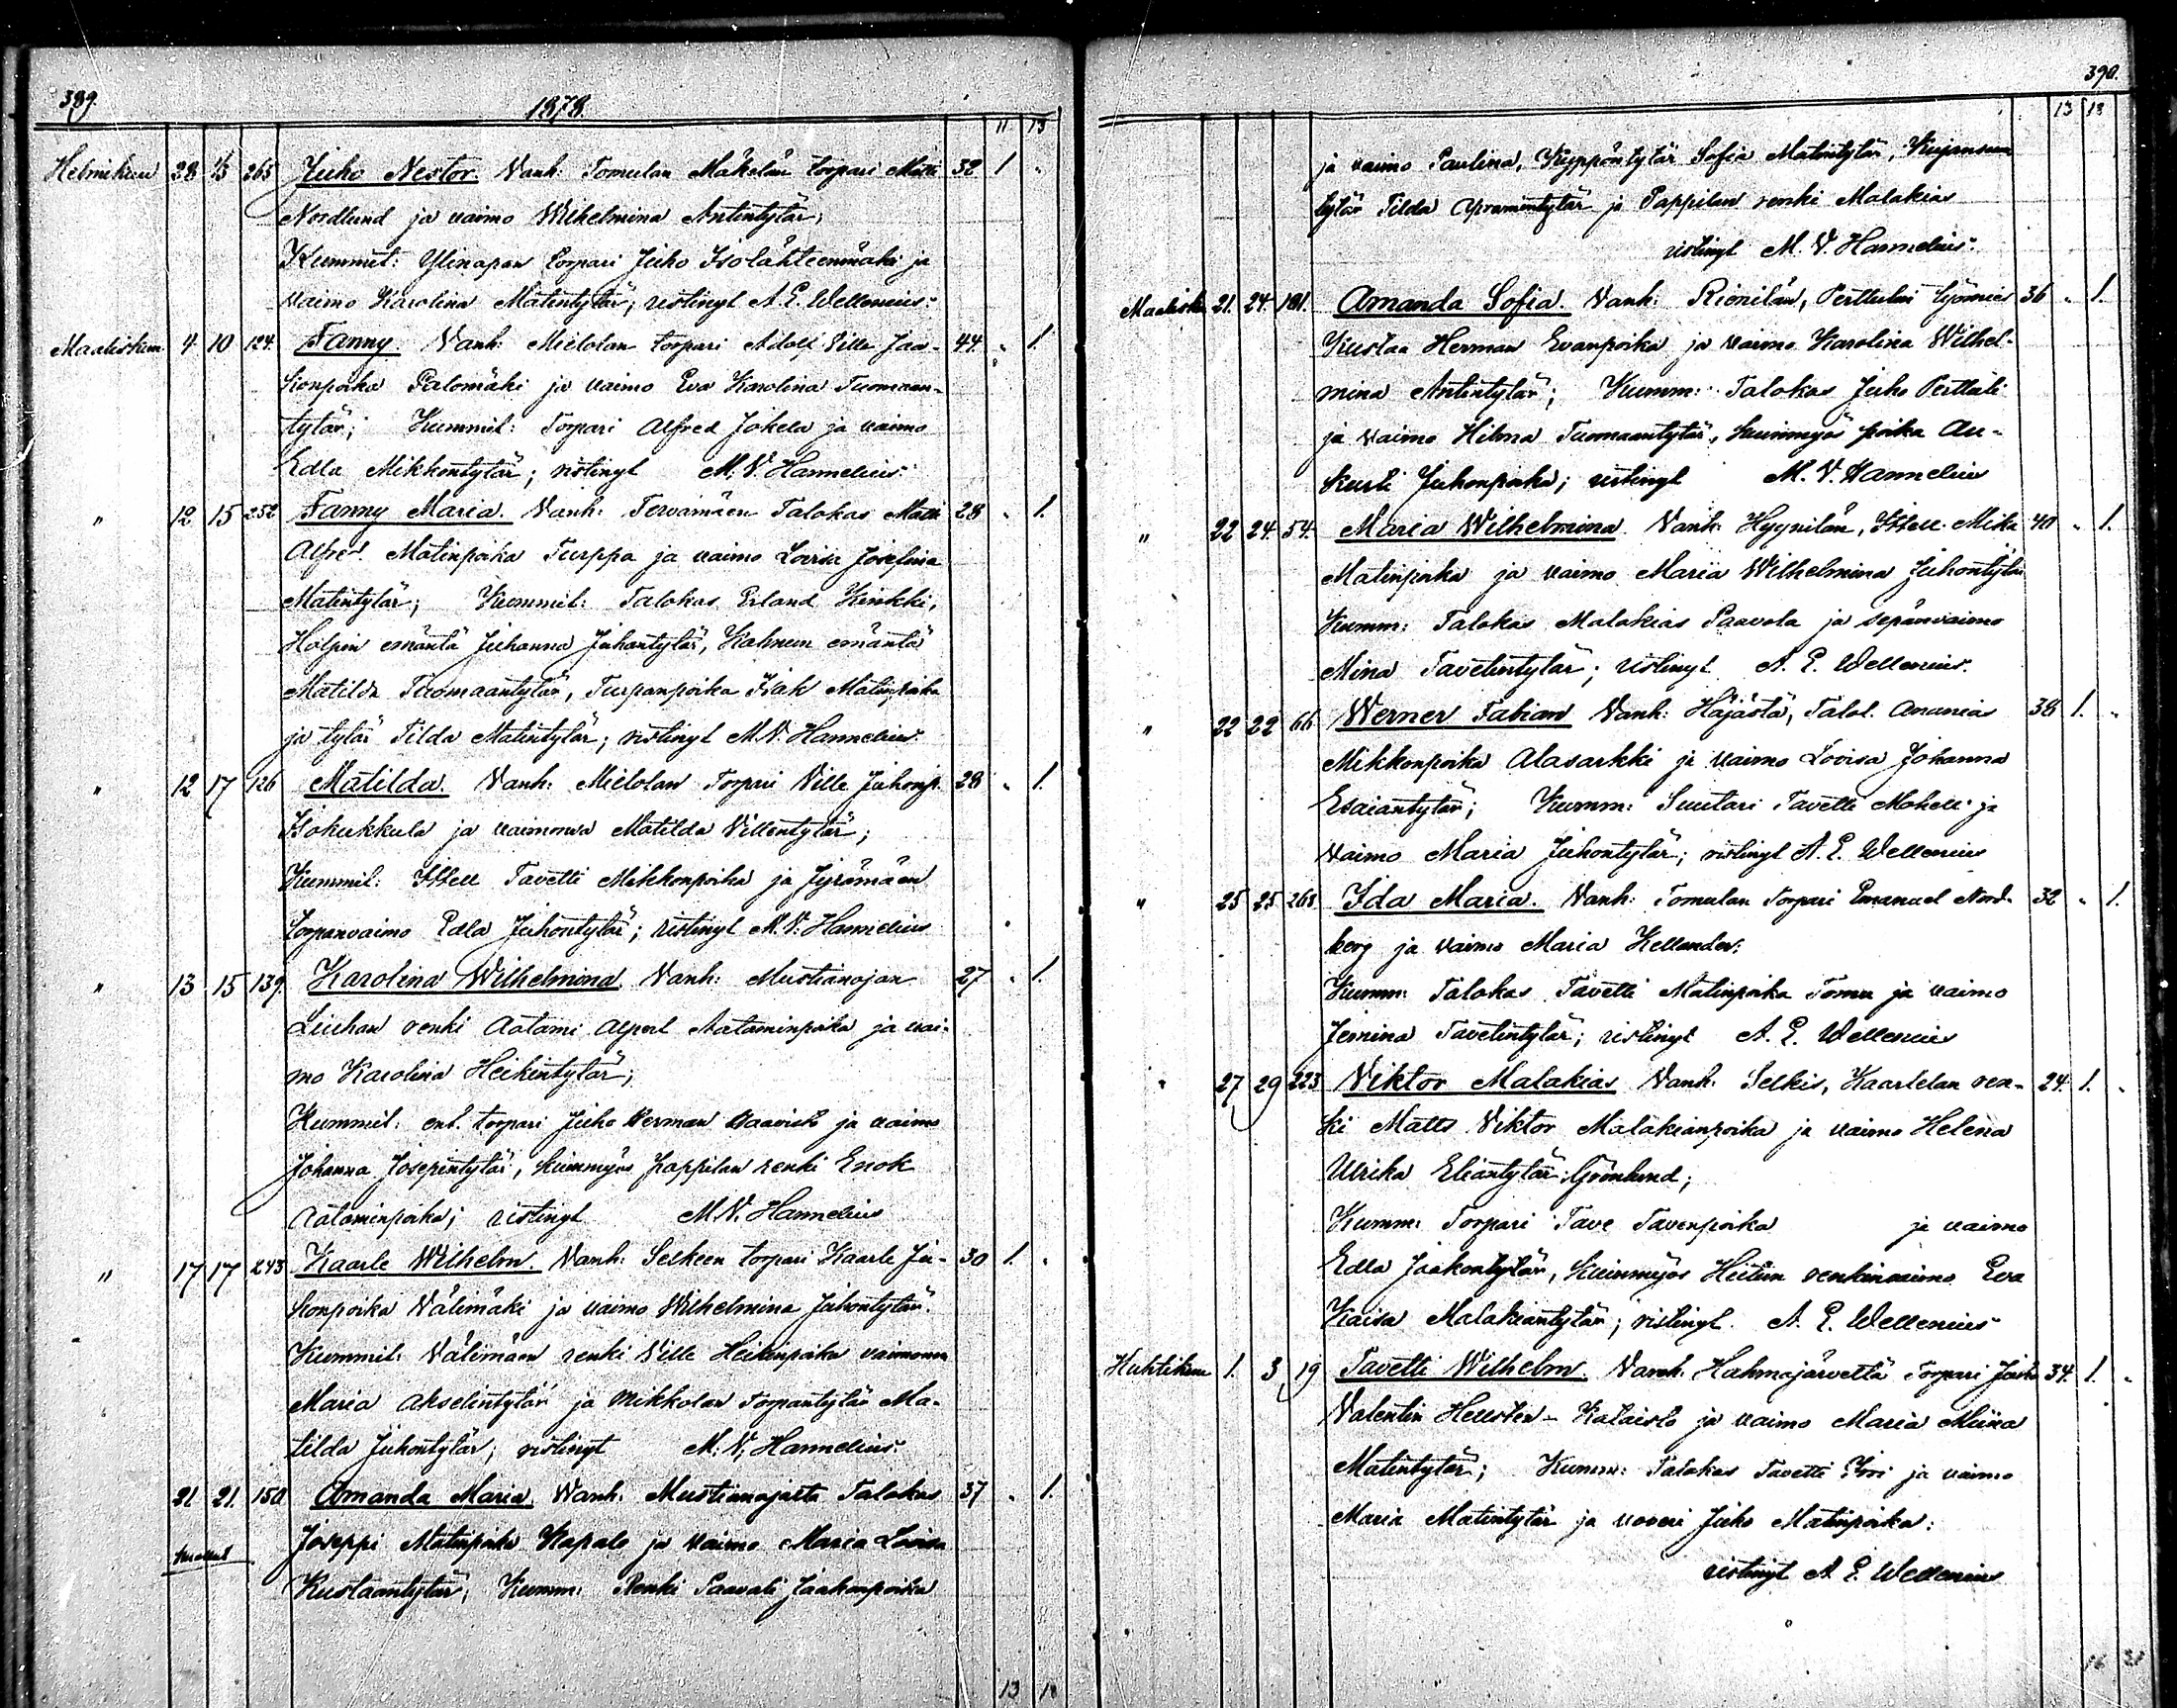 389.
1878.
11 13
Helmikuu 28 1/3 265 Juho Nestor. Vanh: Tomulan Mäkelän torpari Matti 32 1 "
Nordlund ja vaimo Wilhelmina Antintytär;
Kummit: Ylinapan torpari Juho Isolähteenmäki ja
vaimo Karolina Matintytär; ristinyt A. E. Wellenius.
Maaliskuu 4 10 124. Fanny. Vanh: Mielolan torpari Adolf Ville Jaa- 44. " 1.
konpoika Palomäki ja vaimo Eva Karolina Tuomaan-
tytär; Kummit: Torpari Alfred Jokela ja vaimo
Edla Mikkontytär; ristinyt M. V. Hannelius.
" 12 15 252 Fanny Maria. Vanh: Tervamäen Talokas Matti 28 " 1.
Alfred Matinpoika Turppa ja vaimo Lovisa Josefina
Matintytär; Kummit: Talokas Erland Kinkki,
Holpin emäntä Juhanna Juhontytär, Kahnun emäntä
Matilda Tuomaantytär, Turpanpoika Isak Matinpoika
ja tytär Tilda Matintytär; ristinyt M. V. Hannelius.
" 12 17 126 Matilda. Vanh: Mielolan Torpari Ville Juhonp. 28 " 1.
Isokukkula ja vaimonsa Matilda Villentytär;
Kummit: Itsell Tavetti Mikkonpoika ja Jyrämäen
torpanvaimo Edla Juhontytär; ristinyt M. V. Hannelius
" 13 15 139. Karolina Wilhelmina. Vanh: Mustianojan 27 " 1.
Liuhan renki Aatami Alpert Aataminpoika ja vai-
mo Karolina Heikintytär;
Kummit: ent. torpari Juho Herman Haavisto ja vaimo
Johanna Josepintytär, kuinmyös pappilan renki Enok
Aataminpoika; ristinyt M. V. Hannelius
" 17 17 243 Kaarle Wilhelm. Vanh: Selkeen torpari Kaarle Ja- 30 1. "
konpoika Välimäki ja vaimo Wilhelmina Juhontytär.
Kummit: Välimäen renki Ville Heikinpoika vaimonsa
Maria Akselintytär ja Mikkolan Torpantytär Ma-
tilda Juhontytär; ristinyt M. V. Hannelius.
21 21. 150 Amanda Maria. Vanh. Mustianojasta Talokas 37 " 1.
Joseppi Matinpoika Kapale ja vaimo Maria Lovisa
Kustaantytär; Kumm: Renki Paavali Jaakonpoika
13 18
390.
13 18
ja vaimo Paulina, Kyppöntytär Sofia Matintytär, Kujansuun
tytär Tilda Apramintytär ja Pappilan renki Malakias
ristinyt M. V. Hannelius.
Maalisku 21. 24. 181. Amanda Sofia. Vanh: Rionilan, Perttulin työmies 36 " 1.
Kustaa Herman Evanpoika ja vaimo Karolina Wilhel-
mina Antintytär; Kumm: Talokas Juho Perttuli
ja vaimo Hilma Tuomaantytär, kuinmyös poika Au-
kusti Juhonpoika; ristinyt M. V. Hannelius
" 22 24. 54. Maria Wilhelmina. Vanh: Hyynilän, Itsell. Mikki 40 " 1.
Matinpoika ja vaimo Maria Wilhelmina Juhontytär
Kumm: Talokas Malakias Paavola ja sepänvaimo
Mina Tavetintytär; ristinyt A. E. Wellenius.
" 22 22 66 Werner Fabian Vanh: Häjästä, Talol. Ananias 38 1. "
Mikkonpoika Alasarkki ja vaimo Lovisa Johanna
Esaiantytär; Kumm: Suutari Tavetti Mohell ja
vaimo Maria Juhontytär; ristinyt A. E. Wellenius
" 25 25 268 Ida Maria. Vanh: Tomulan Torpari Emanuel Nord- 32 " 1.
berg ja vaimo Maria Kellander.
Kumm: Talokas Tavetti Matinpoika Tomu ja vaimo
Jemina Tavetintytär; ristinyt A. E. Wellenius
" 27 29 223 Viktor Malakias Vanh: Selkis, Kaartelan ren- 24. 1. "
ki Matts Viktor Malakianpoika ja vaimo Helena
Ulrika Eliantytär Grönlund;
Kumm: Torpari Tave Tavenpoika ja vaimo
Edla Jaakontytär, kuinmyös Heitun renkinvaimo Eva
Kaisa Malakiantytär; ristinyt A. E. Wellenius
Huhtikuu 1. 3 19 Tavetti Wilhelm. Vanh. Hahmajärveltä Torpari Juho 34. 1. "
Valentin Hellsten - Kataisto ja vaimo Maria Miina
Matintytär; Kumm: Talokas Tavetti Irri ja vaimo
Maria Matintytär ja voveri Juho Matinpoika:
ristinyt A. E. Wellenius